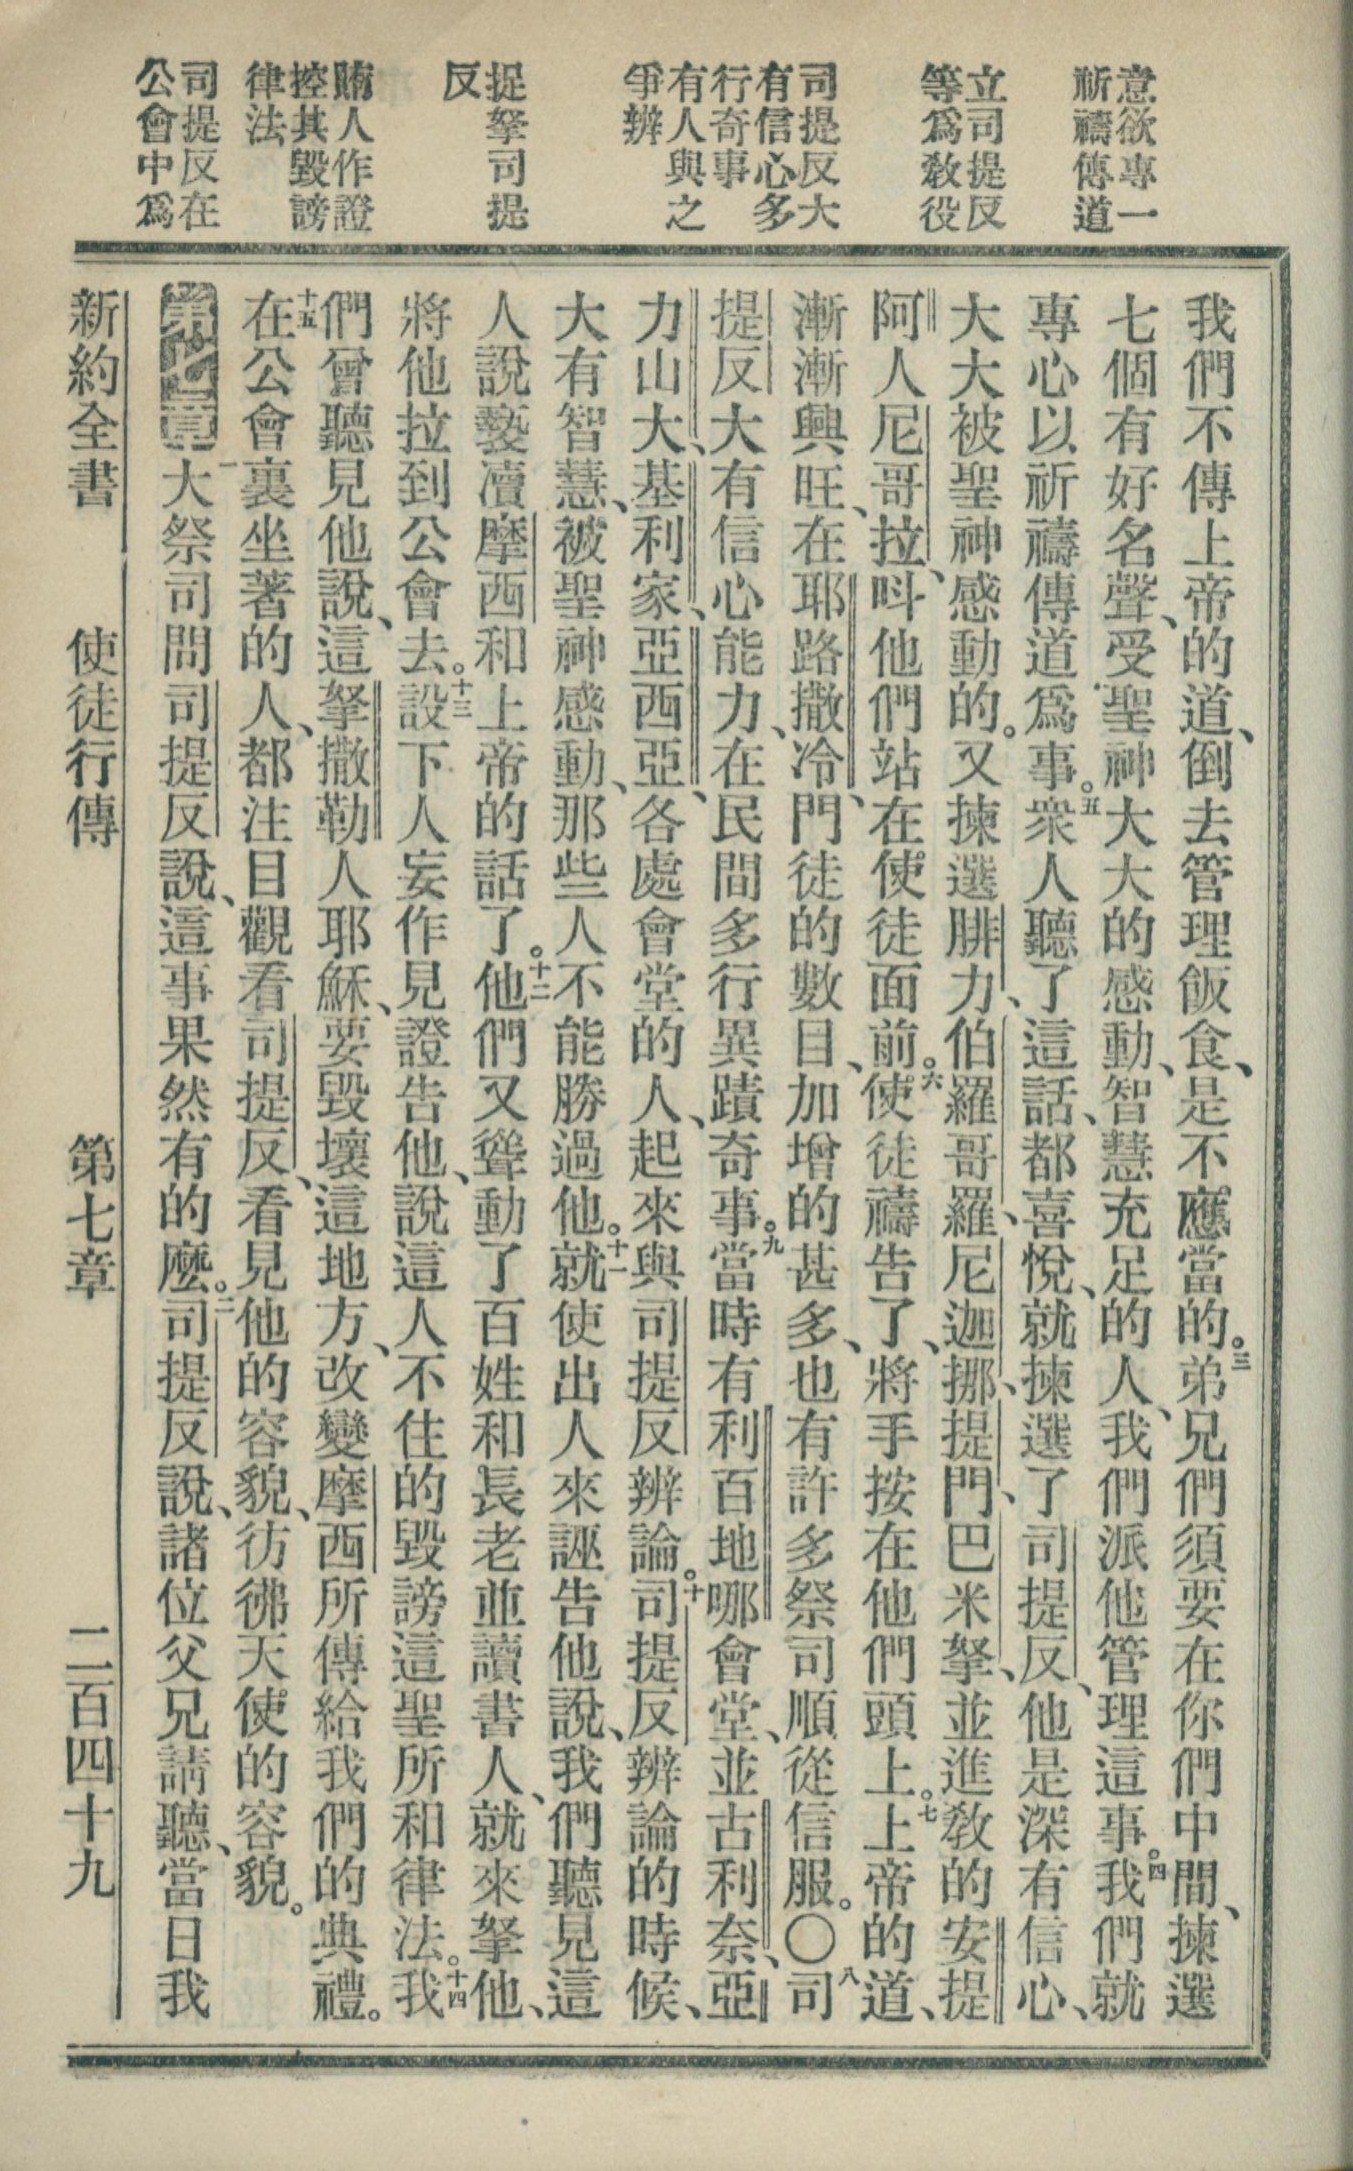 意欲專一
祈禱傳道
立司提反
等爲敎役
司提反大
有信心多
行奇事
有人與之
爭辨
捉拏司提
反
賄人作證
控其毀謗
律法
司提反在
公會中爲
我們不傳上帝的道、倒去管理飯食、是不應當的。三弟兄們須要在你們中間、揀選
七個有好名聲、受聖神大大的感動、智慧充足的人、我們派他管理這事。四我們就
專心以祈禱傳道爲事。五衆人聽了這話、都喜悅、就揀選了司提反、他是深有信心、
大大被聖神感動的。又揀選腓力、伯羅哥羅、尼迦挪、提門、巴米拏、並進敎的安提
阿人尼哥拉、呌他們站在使徒面前。六使徒禱告了、將手按在他們頭上。七上帝的道、
漸漸興旺、在耶路撒冷、門徒的數目、加增的甚多、也有許多祭司順從信服。〇八司
提反大有信心能力、在民間多行異蹟奇事。九當時有利百地哪會堂、並古利奈、亞
力山大、基利家、亞西亞、各處會堂的人、起來與司提反辨論。十司提反辨論的時候、
大有智慧、被聖神感動、那些人不能勝過他。十一就使出人來誣告他說、我們聽見這
人說褻瀆摩西和上帝的話了。十二他們又聳動了百姓和長老並讀書人、就來拏他、
將他拉到公會去。十三設下人妄作見證告他、說這人不住的毀謗這聖所和律法。十四我
們曾聽見他說、這拏撒勒人耶穌、要毀壞這地方、改變摩西所傳給我們的典禮。
十五在公會裏坐著的人、都注目觀看司提反、看見他的容貌、彷彿天使的容貌。
第七章一大祭司問司提反說、這事果然有的麽。二司提反說、諸位父兄請聽、當日我
新約全書　使徒行傳　第七章　二百四十九